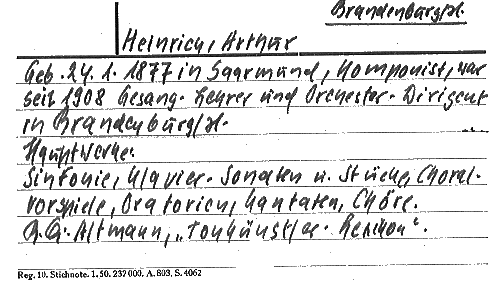 Brandenburg/H.
Heinrich, Arthur
Geb. 24. 1. 1877 in Saarmund, Komponist, war
seit 1908 Gesang-Lehrer und Orchester-Dirigent
in Brandenburg/H.
Hauptwerke:
Sinfonie, Klavier-Sonaten u. Stücke, Choral-
vorspiele, Oratorien, Kantaten, Chöre.
Altmann, „Tonkünstler-Lexikon".
Reg. 10. Stichnote. 1. 50. 237 000. A. 803. S. 4062